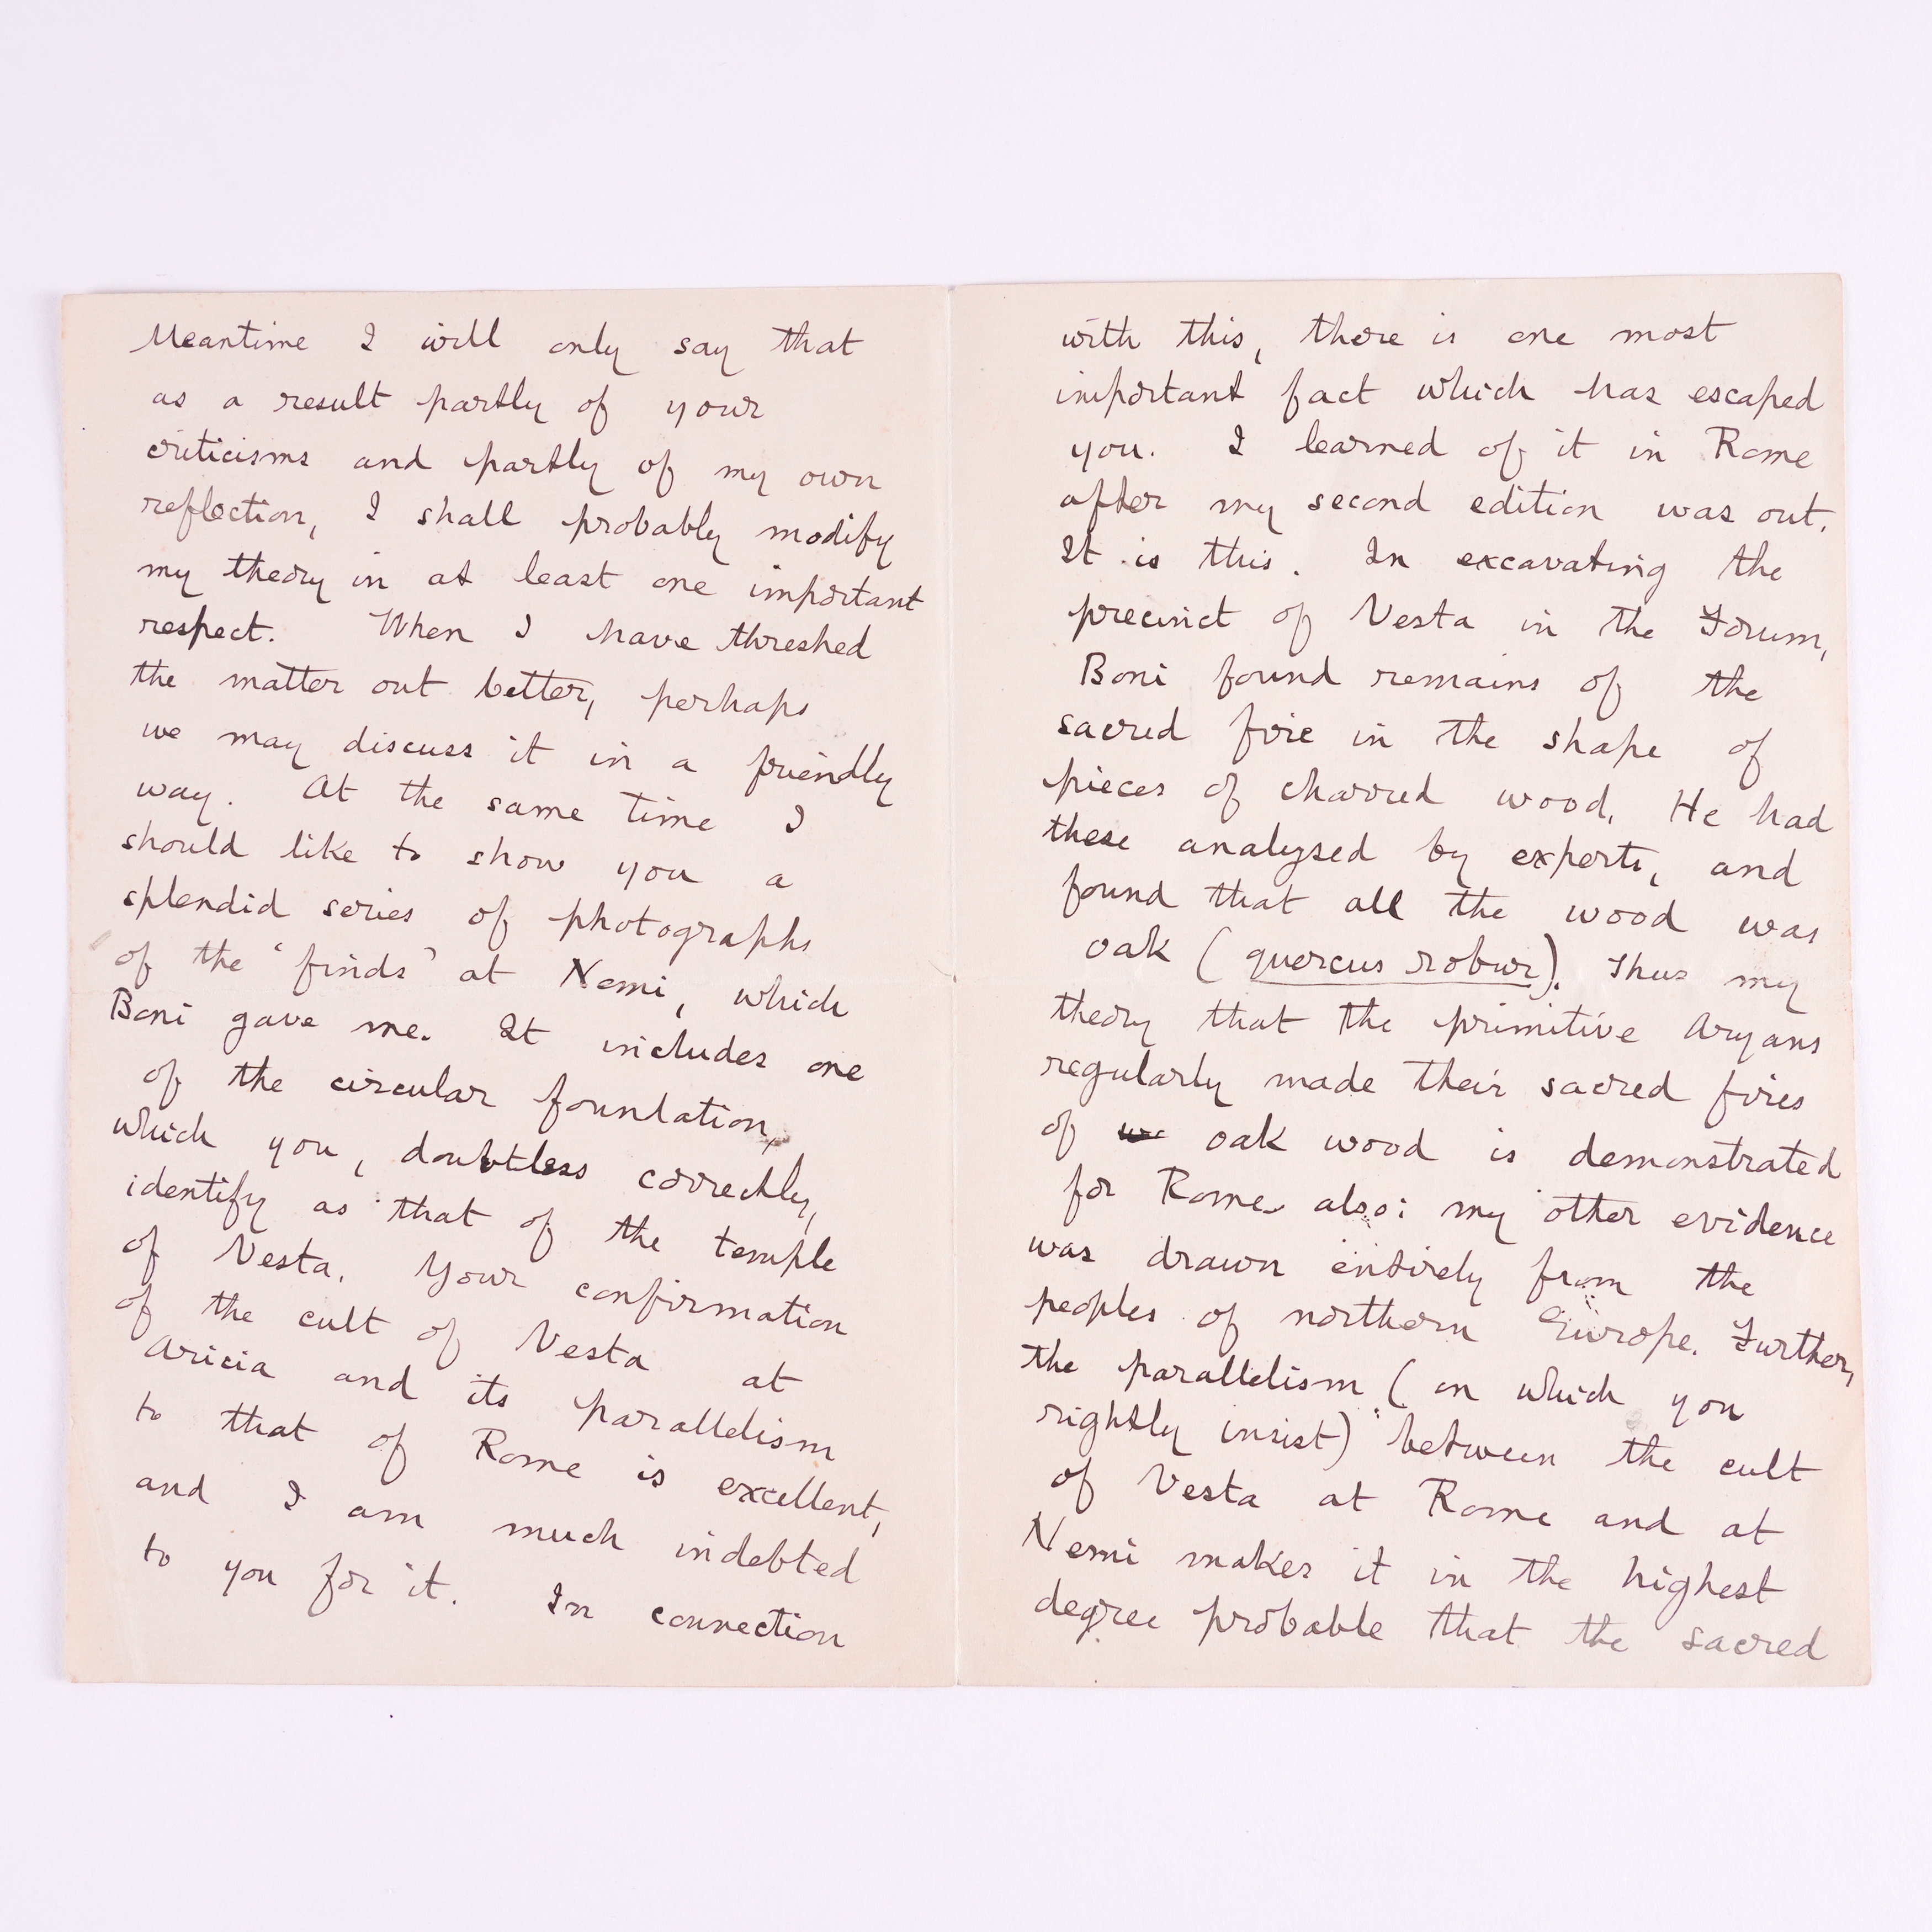 Meantime I will only say that
as a result partly of your
criticisms and partly of my own
reflection, I shall probably modify
my theory in at least one important
respect. When I have threshed
the matter out better, perhaps
we may discuss it in a friendly
way. At the same time I
should like to show you a
splendid series of photographs
of the 'finds' at Nemi, which
Boni gave me. It includes one
of the circular foundation,
which you, doubtless correctly,
identify as that of the temple
of Vesta. Your confirmation
of the cult of Vesta at
Aricia and its parallelism
to that of Rome is excellent,
and I am much indebted
to you for it. In connection
with this, there is one most
important fact which has escaped
you. I learned of it in Rome
after my second edition was out.
It is this. In excavating the
precinct of Vesta in the Forum,
Boni found remains of the
sacred fire in the shape of
pieces of charred wood. He had
these analysed by experts, and
found that all the wood was
oak (quercus robur). Thus my
theory that the primitive Aryans
regularly made their sacred fires
of oak wood is demonstrated
for Rome also: my other evidence
was drawn entirely from the
peoples of northern Europe. Further,
the parallelism (on which you
rightly insist) between the cult
of Vesta at Rome and at
Nemi makes it in the highest
degree probable that the sacred